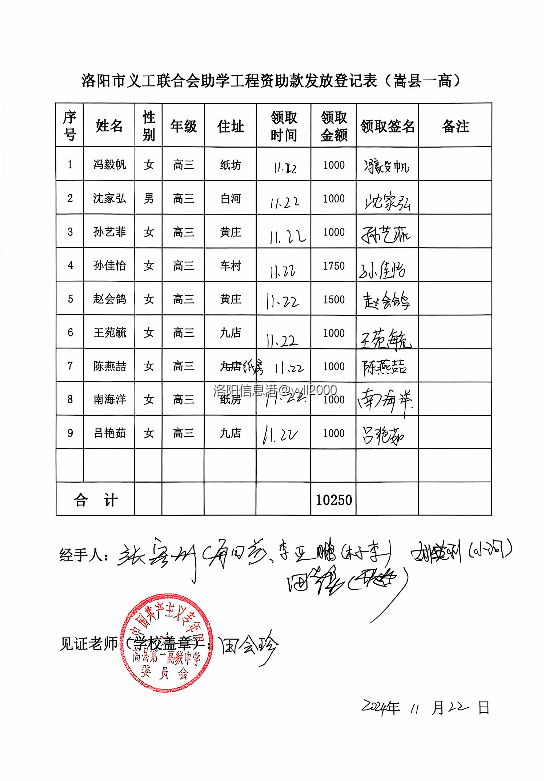 洛阳市义工联合会助学工程资助款发放登记表（嵩县一高）
序号 姓名 性别 年级 住址 领取时间 领取金额 领取签名 备注
1 冯毅帆 女 高三 纸坊 11.22 1000 冯毅帆
2 沈家弘 男 高三 白河 11.22 1000 沈家弘
3 孙艺菲 女 高三 黄庄 11.22 1000 孙艺菲
4 孙佳怡 女 高三 车村 11.22 1750 孙佳怡
5 赵会鸽 女 高三 黄庄 11.22 1500 赵会鸽
6 王苑毓 女 高三 九店 11.22 1000 王苑毓
7 陈燕喆 女 高三 九店 纸房 11.22 1000 陈燕喆
洛阳信息港@wll2000
8 南海洋 女 高三 纸房 11.22 1000 南海洋
9 吕艳茹 女 高三 九店 11.22 1000 吕艳茹
合 计 10250
经手人： 李亚鹏（木子李）
见证老师（学校盖章）：田会珍
中国共产主义青年团
嵩县第一高级中学
委员会
2024年 11 月 22 日